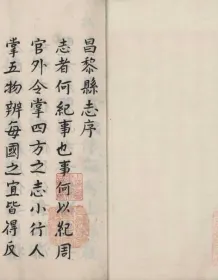 昌黎縣志序
志者何紀事也事何以紀周
官外令掌四方之志小行人
掌五物辨每國之宜皆得反